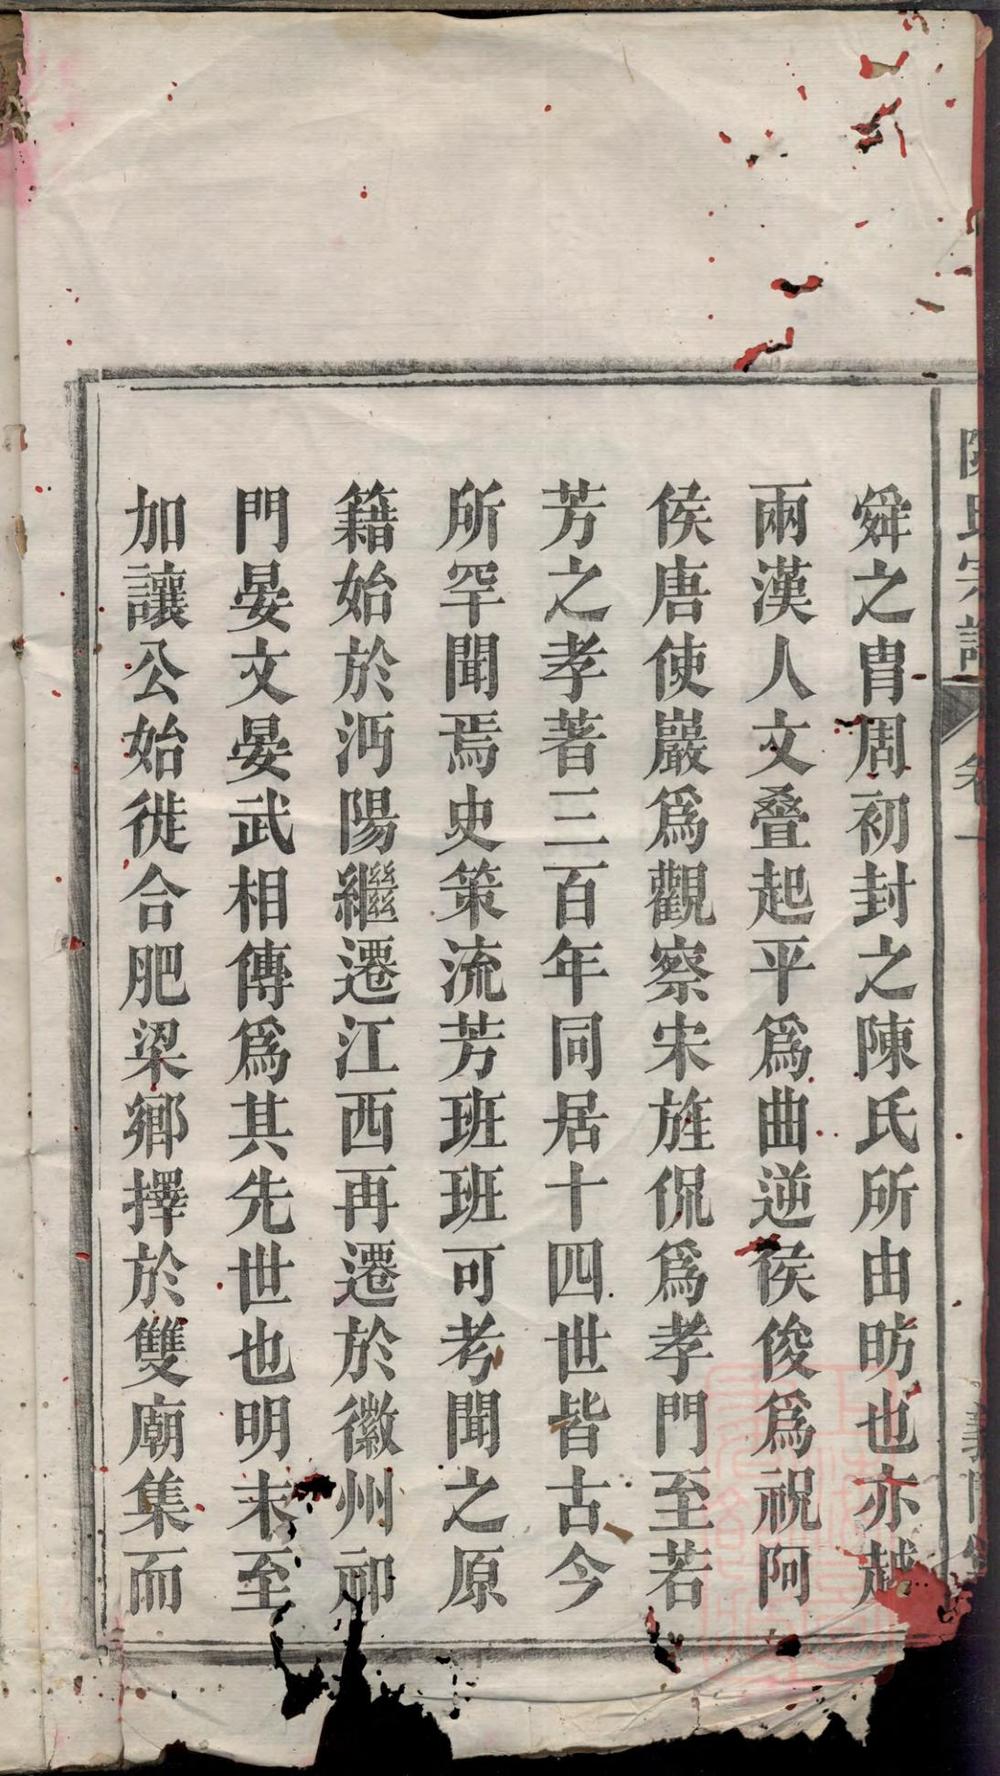 陳氏宗譜 卷一
舜之胄周初封之陳氏所由昉也亦越
兩漢人文叠起平爲曲逆侯俊爲祝阿
侯唐使巖爲觀察宋旌侃爲孝門至若
芳之孝著三百年同居十四世皆古今
所罕聞焉史策流芳班班可考聞之原
籍始於沔陽繼遷江西再遷於徽州祁
門晏文晏武相傳爲其先世也明末至
加讓公始徙合肥梁鄉擇於雙廟集而